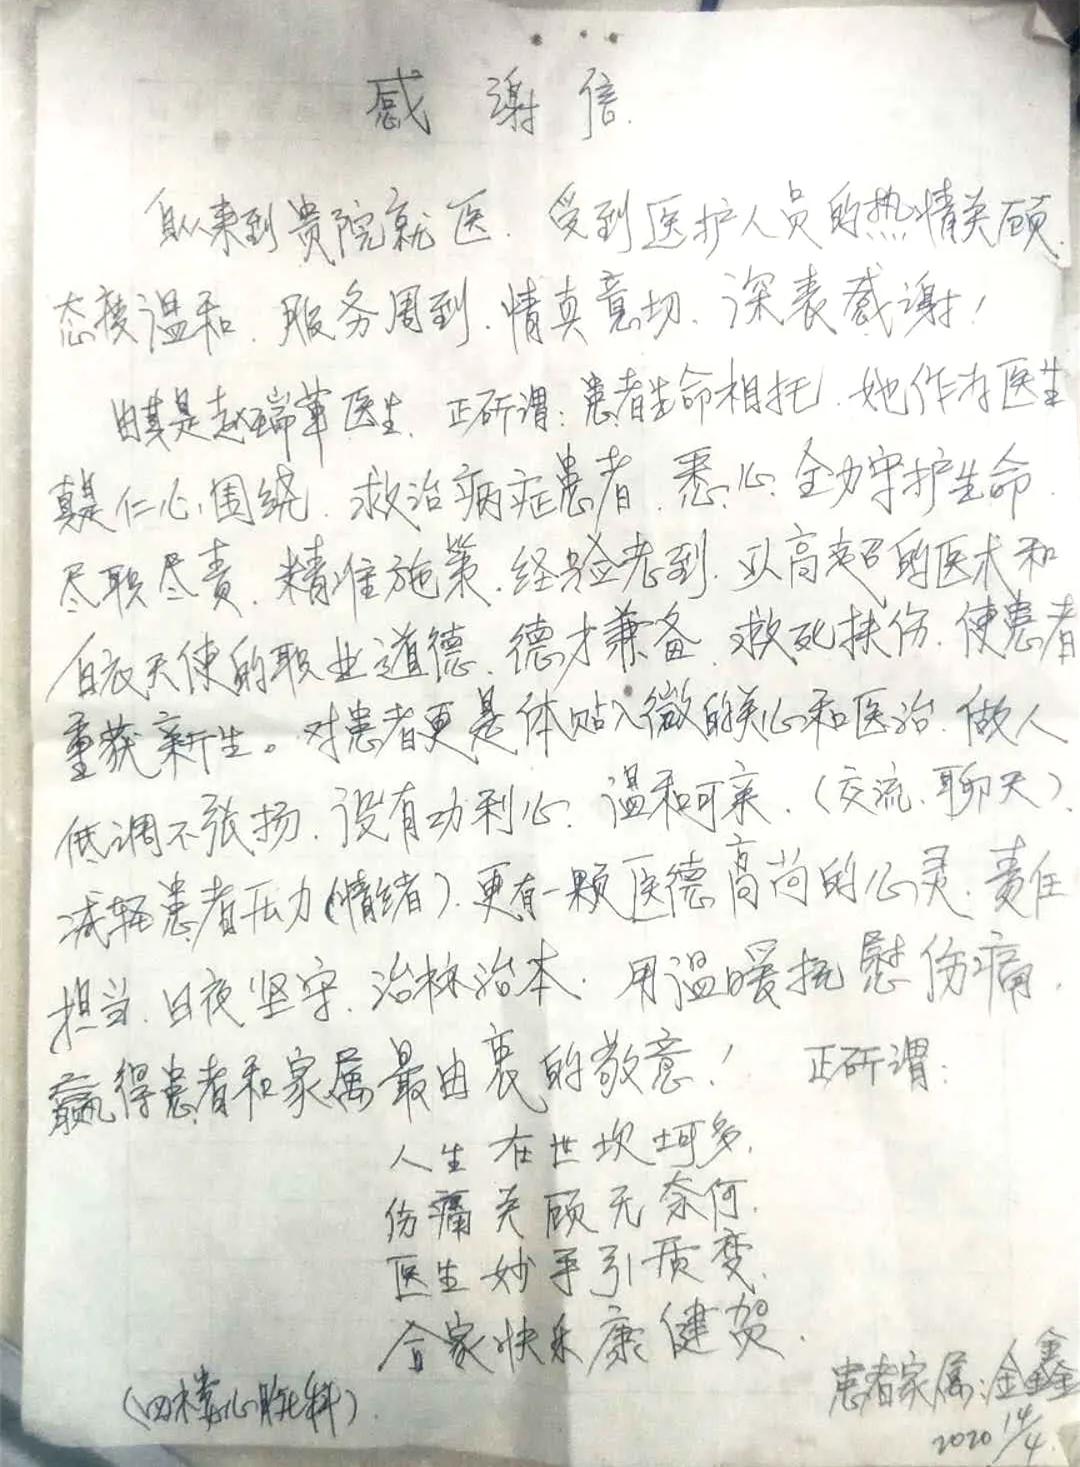 感谢信.
自从来到贵院就医.受到医护人员的热情关顾.
态度温和.服务周到.情真意切.深表感谢!
由其是赵瑞革医生.正所谓:患者生命相托.她作为医生
真是仁心围绕.救治病症患者.悉心.全力守护生命.
尽职尽责.精准施策.经验老到.以高超的医术和
白衣天使的职业道德.德才兼备.救死扶伤.使患者
重获新生。对患者更是体贴入微的关心和医治.做人
低调不张扬.没有功利心.温和可亲.(交流.聊天).
减轻患者压力(情绪).更有一颗医德高尚的心灵.责任
担当.日夜坚守.治标治本.用温暖抚慰伤痛.
赢得患者和家属最由衷的敬意! 正所谓:
人生在世坎坷多.
伤痛关顾无奈何.
医生妙手引质变.
合家快乐康健贺.
(四楼心脏科).
患者家属:金鑫
2020 14/4.